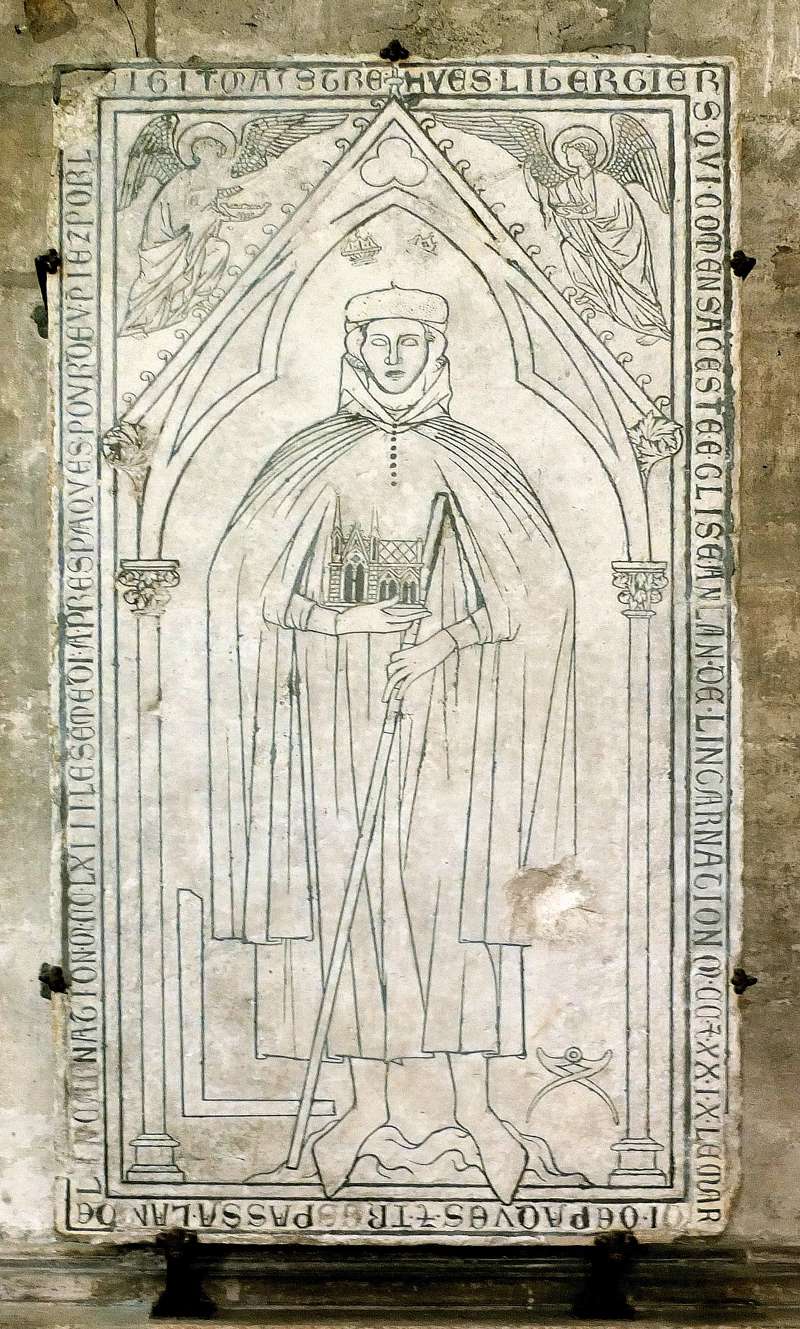 IGIT MAISTRE HVES LIBERGIER
S QVI COMENSA CESTE EGLISE AN LAN DE LINCARNATION M CC 7 XX IX LE MAR
I DE PAQVES 7 TRESPASSA LAN DE
NATION M CC LXIII LE SEMEDI APRES PAQVES POVR DEV PIEZ POR L